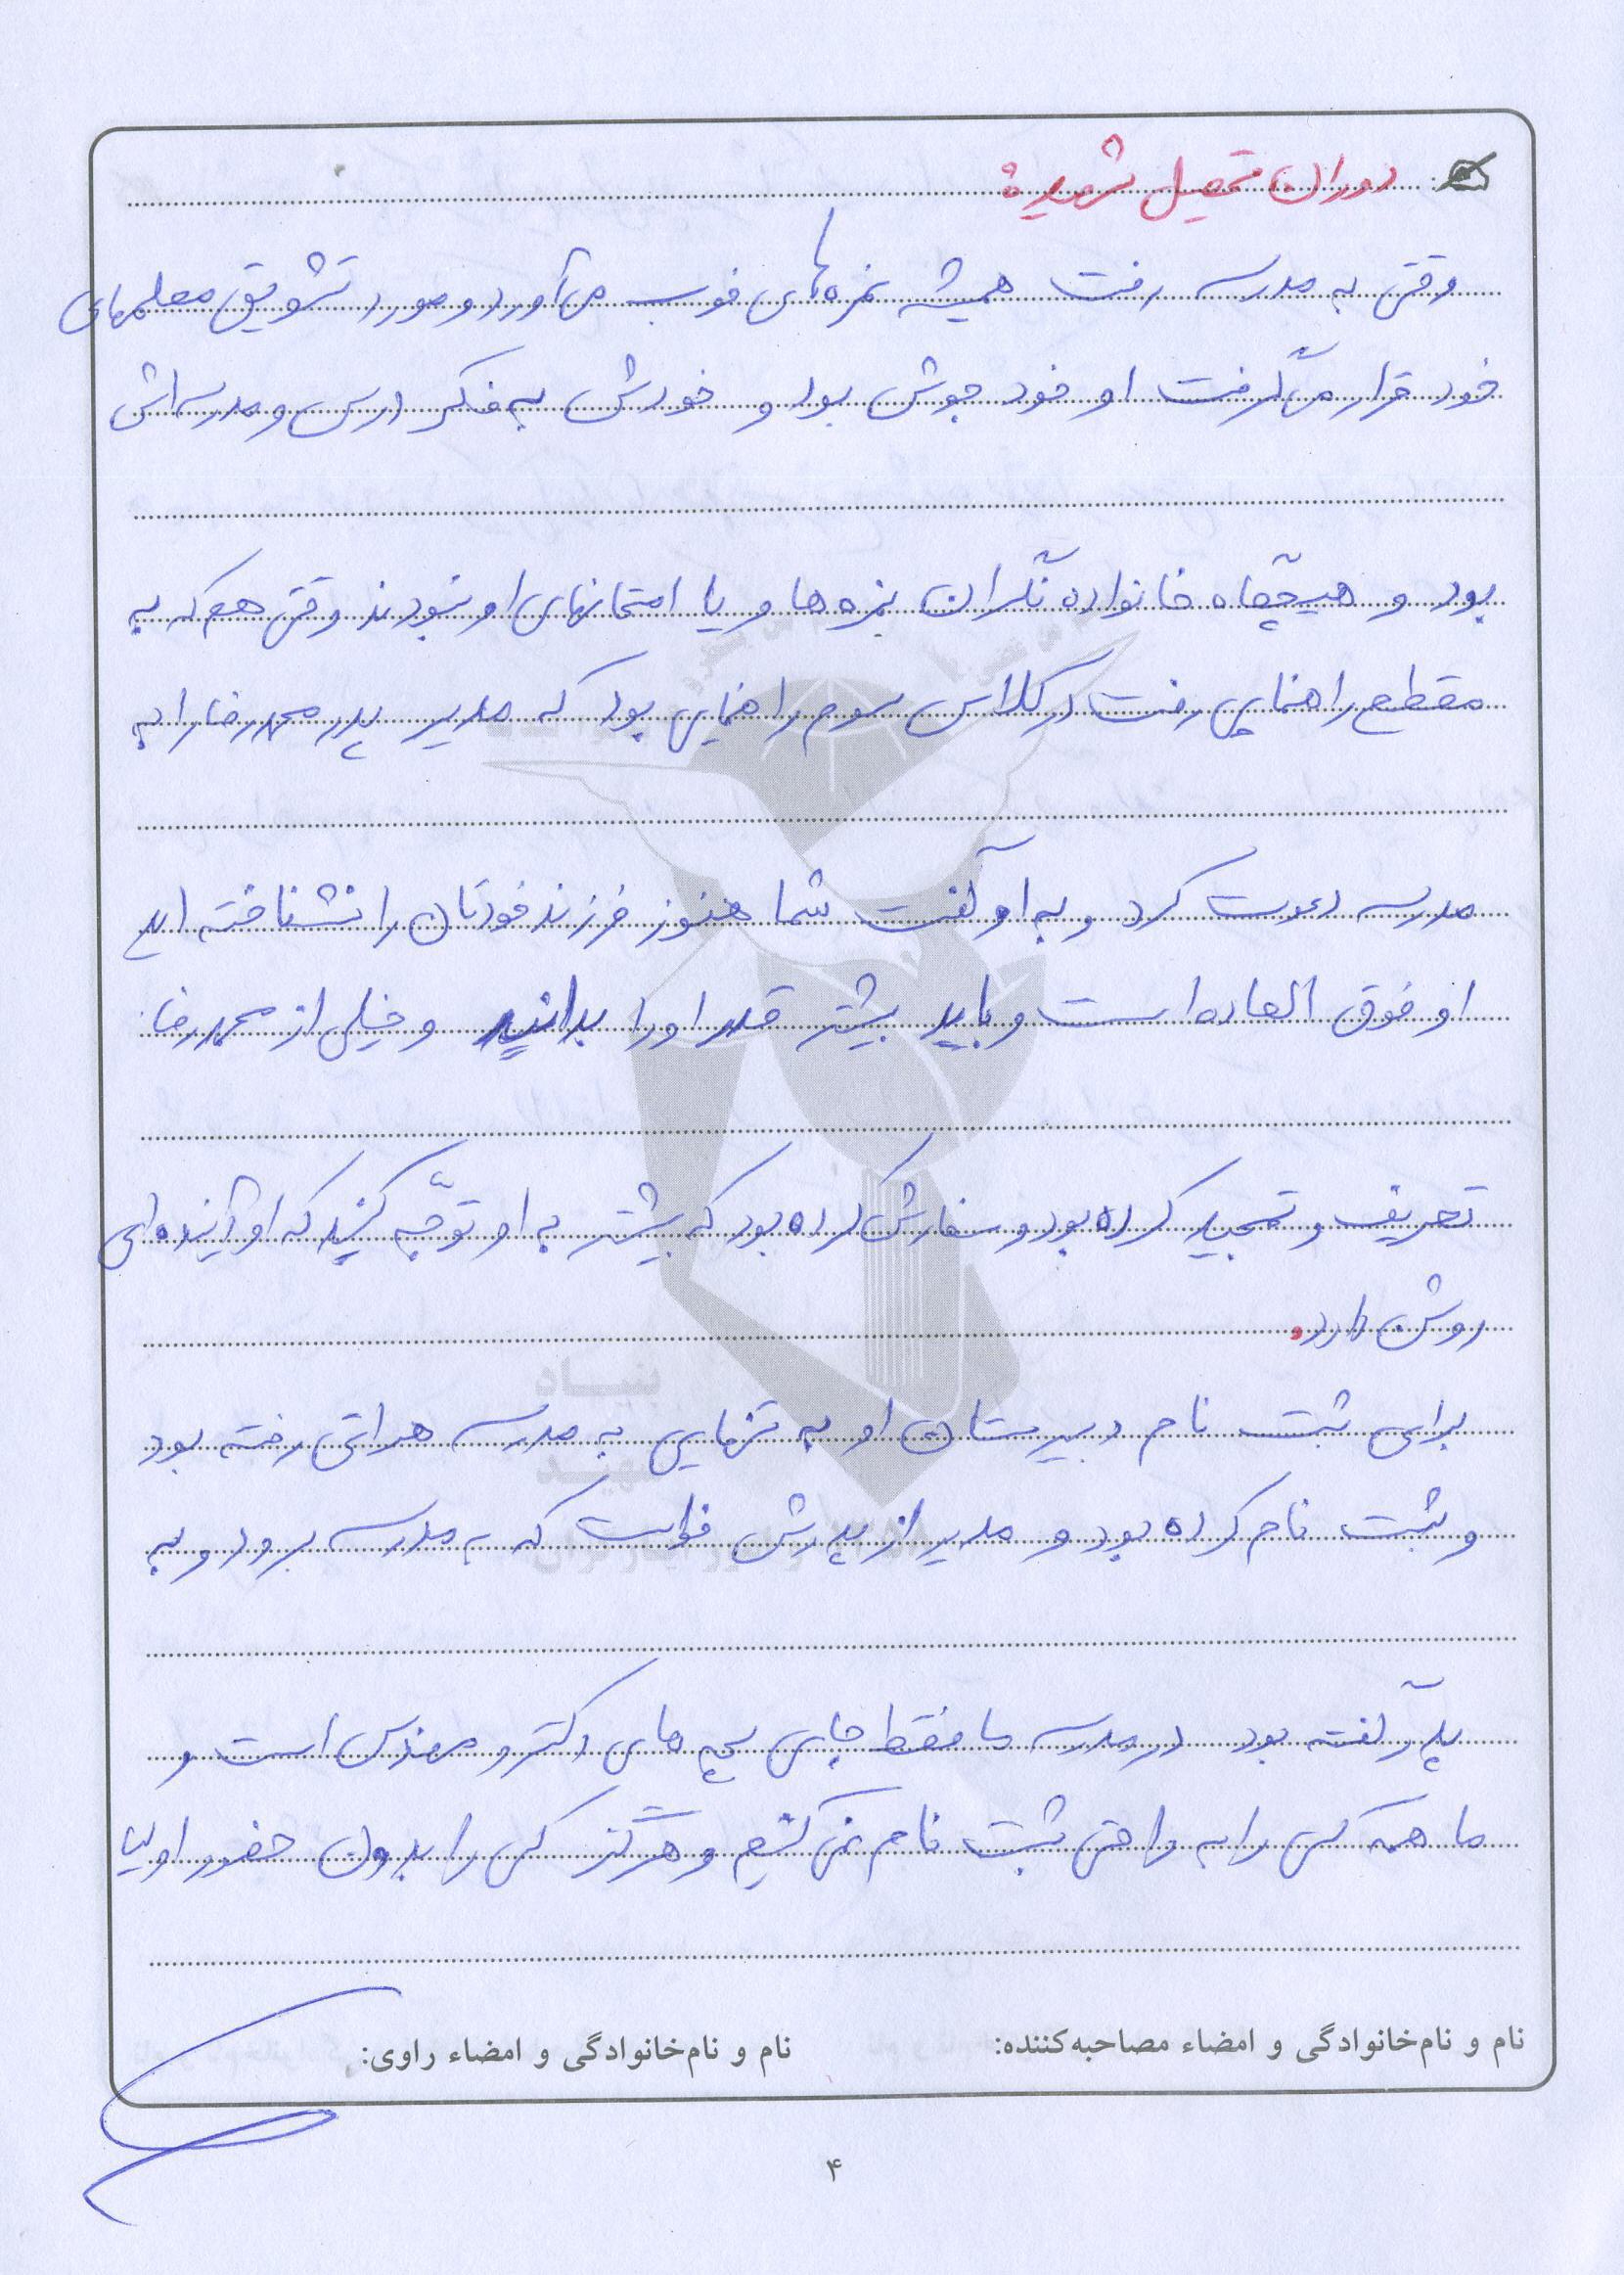 دوران تحصیل شهید:
وقتی به مدرسه رفت همیشه نمره‌های خوب می‌آورد و مورد تشویق معلمهای
خود قرار می‌گرفت او خود جوش بود و خودش به فکر درس و مدرسه‌اش
بود و هیچگاه خانواده نگران نمره‌ها و یا امتحانهای او نبودند وقتی هم که به
مقطع راهنمایی رفت در کلاس سوم راهنمایی بود که مدیر پدر محمدرضا را به
مدرسه دعوت کرد و به او گفت شما هنوز فرزند خودتان را نشناخته اید
او فوق العاده است و باید بیشتر قدر او را بدانید و خیلی از محمدرضا
تعریف و تمجید کرده بود و سفارش کرده بود که بیشتر به او توجّه کنید که او آینده‌ای
روشن دارد.
برای ثبت نام دبیرستان او به تنهایی به مدرسه هراتی رفته بود
و ثبت نام کرده بود و مدیر از پدرش خواست که به مدرسه برود و به
پدر گفته بود در مدرسه ما فقط جای بچه های دکتر و مهندس است و
ما همه کسی را به راحتی ثبت نام نمی‌کنیم و هرگز کسی را بدون حضور اولیا
نام و نام‌خانوادگی و امضاء مصاحبه‌کننده:
نام و نام‌خانوادگی و امضاء راوی:
۴